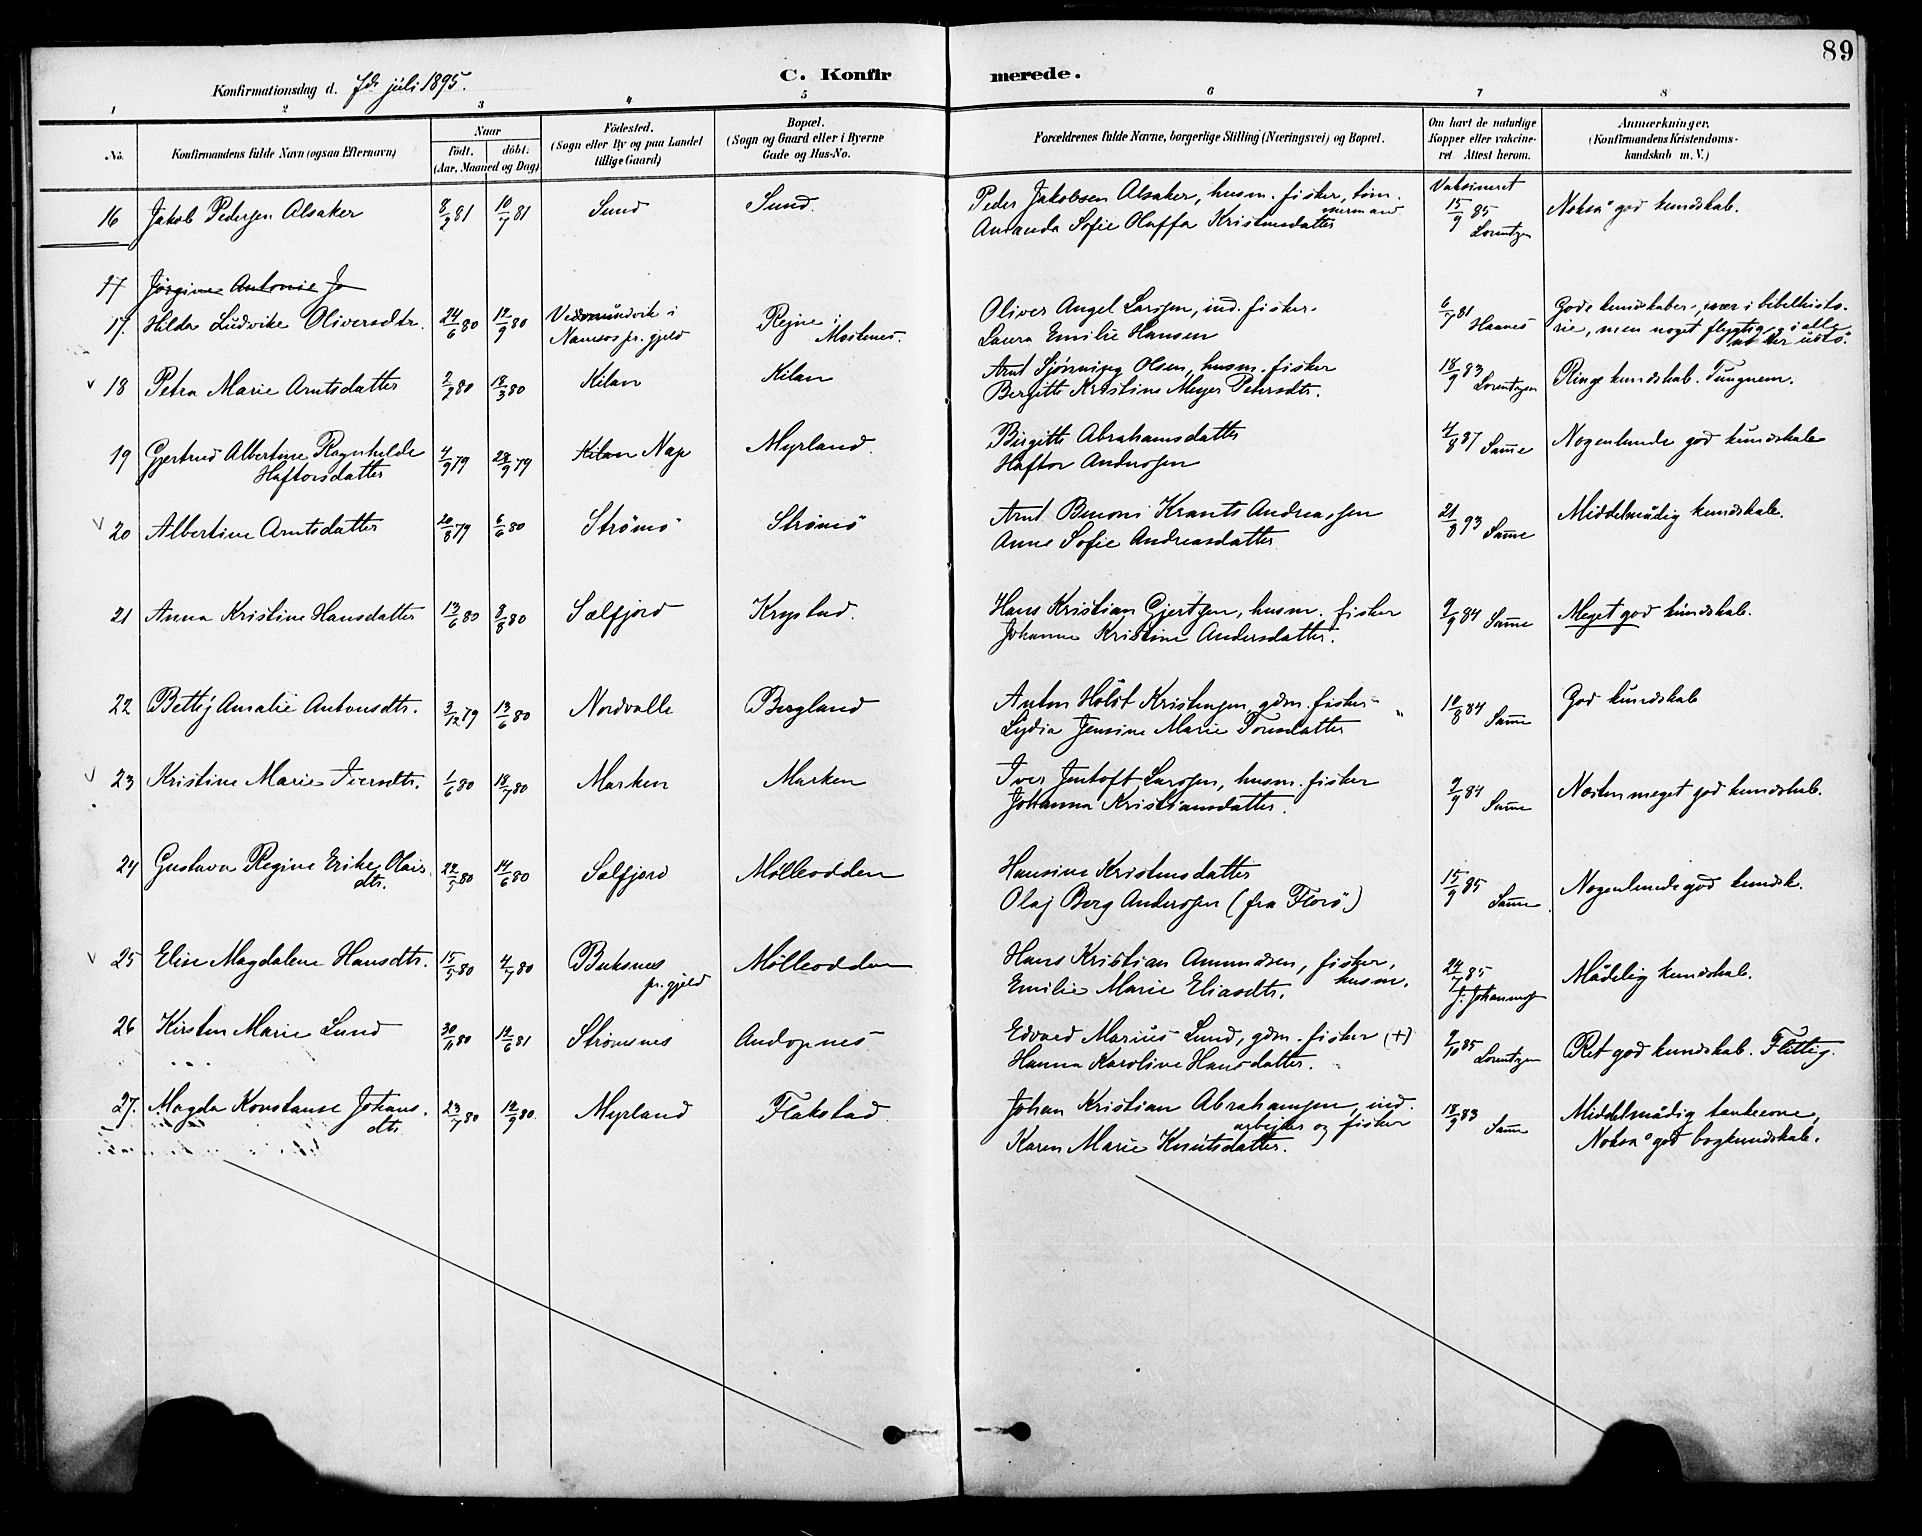 89
Konfirmationsdag d. 7de juli 1895.
C. Konfirmerede.
1 2 3 4 5 6 7 8
No.
Konfirmandens fulde Navn (ogsaa Efternavn)
Naar
födt. döbt.
(Aar, Maaned og Dag)
Födested.
(Sogn eller By og paa Landet
tillige Gaard)
Bopæl.
(Sogn og Gaard eller i Byerne
Gade og Hus-No.
Forældrenes fulde Navne, borgerlige Stilling (Næringsvei) og Bopæl.
Om havt de naturlige
Kopper eller vakcine-
ret Attest herom.
Anmærkninger.
(Konfirmandens Kristendoms-
kundskab m. V.)
16 Jakob Pedersen Alsaker 8/2 81 10/7 81 Sund Sund. Peder Jakobsen Alsaker, husm. fisker, tøm-
mermand
Amanda Sofie Oluffa Kristensdatter
Vaksineret
15/9 85 Lorentzen
Nokså god kundskab.
17 Jørgine Antonie Jo
17. Hilda Ludvike Oliversdtr. 24/6 80 12/9 80 i
Namsos pr. gjeld
Rejne i
Moskenes.
Oliver Angel Larsen, ind. fisker.
Laura Emilie Hansen
6/7 81 Haanes
Gode kundskaber, især i bibelhisto-
rie, men noget flygtig
v 18 Petra Marie Arntsdatter 2/2 80 18/3 80 Kilan Kilan
Arnt Sjønning Olsen, husm. fisker
Bergitte Kristine Meyer Petersdtr.
18/9 83 Lorentzen
Ringe kundskab. Tungnem.
19 Gjertrud Albertine Ragnhilde
Haftorsdatter
4/9 79 28/9 79 Kilan Nap Myrland.
Birgitte Abrahamsdatter
Haftor Andersen
4/8 87 Samme
Nogenlunde god kundskab
v 20 Albertine Arntsdatter 20/8 79 6/6 80 Strømø Strømø
Arnt Benoni Krants Andreassen
Anne Sofie Andreasdatter
21/8 93 Samme
Middelmådig kundskab.
21 Anna Kristine Hansdatter 13/6 80 8/8 80 Selfjord Krystad.
Hans Kristian Gjertsen, husm. fisker
Johanne Kristine Andersdatter.
9/9 84 Samme
Meget god kundskab.
22 Betty Amalie Antonsdtr. 3/12 79 13/6 80 Nordvalle Bergland
Anton Holst Kristensen, gdm. fisker
Lydia Jensine Marie Tonsdatter
10/8 84 Samme
God kundskab
v 23 Kristine Marie Iversdtr. 1/6 80 18/7 80 Marken Marken
Iver Jentoft Larsen, husm. fisker
Johanna Kristiansdatter.
9/9 84 Samme
Næsten meget god kundskab.
24 Gustava Regine Erike Olais
dtr.
22/5 80 14/6 80 Selfjord Mølleodden
Hansine Kristensdatter
Olaj Berg Andersen (fra Florø.)
15/9 85 Samme
Nogenlunde god kundsk.
v 25 Elise Magdalene Hansdtr. 15/5 80 4/7 80 Buksnes
pr. gjeld
Mølleodden
Hans Kristian Amundsen, fisker,
husm.
Emilie Marie Eliasdtr.
24/7 85
J. Johannes
Mådelig kundskab.
26 Kirsten Marie Lund 30/11 80 12/6 81 Strømsnes Andopnes
Edvard Marius Lund, gdm. fisker (+)
Hanna Karoline Hansdatter.
9/10 85 Lorentzen
Ret god kundskab. Flittig.
27. Magda Konstanse Johans-
dtr.
23/7 80 12/9 80. Myrland Flakstad
Johan Kristian Abrahamsen, ind.
arbejder og fisker
Karen Marie Knutsdatter.
18/9 83 Samme
Middelmådig tankeevne,
Nokså god bogkundskab.